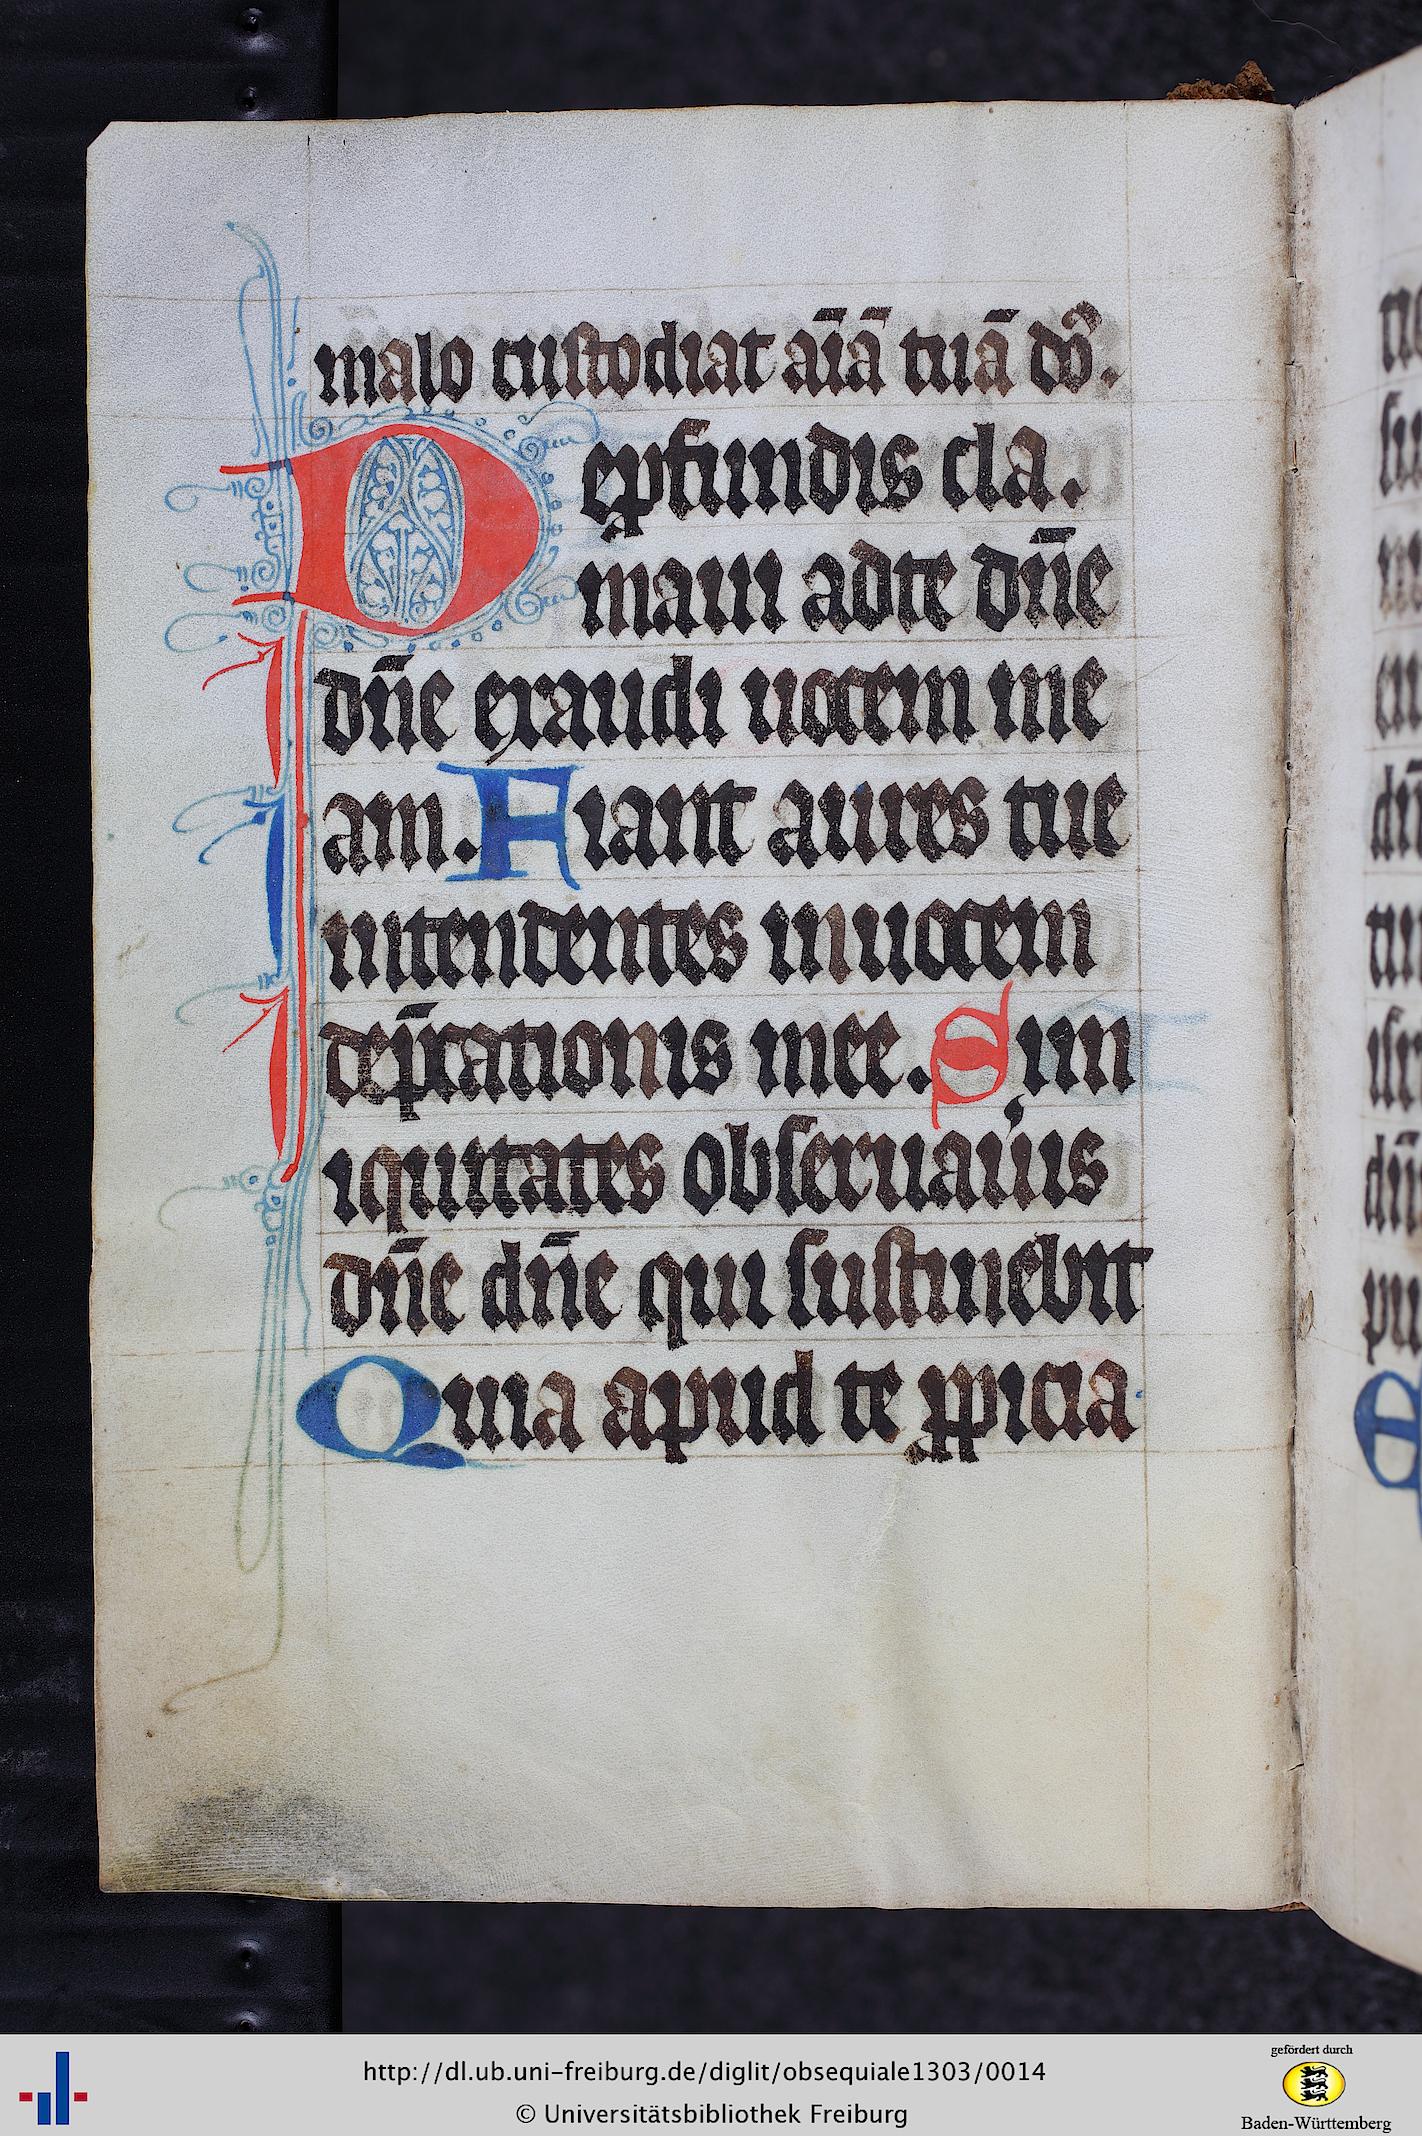 malo custodiat aīā tuā dō.
De ꝓfundis cla.
maui adte dn̄e
dn̄e exaudi uocem me
am. Fiant aures tue
intendentes inuocem
dep̄cationis mee. Si in
iquitates obseruau̍is
dn̄e dn̄e qui sustinebit
Quia apud te ꝓpicia
http://dl.ub.uni-freiburg.de/diglit/obsequiale1303/0014
© Universitätsbibliothek Freiburg
gefördert durch
Baden-Württemberg